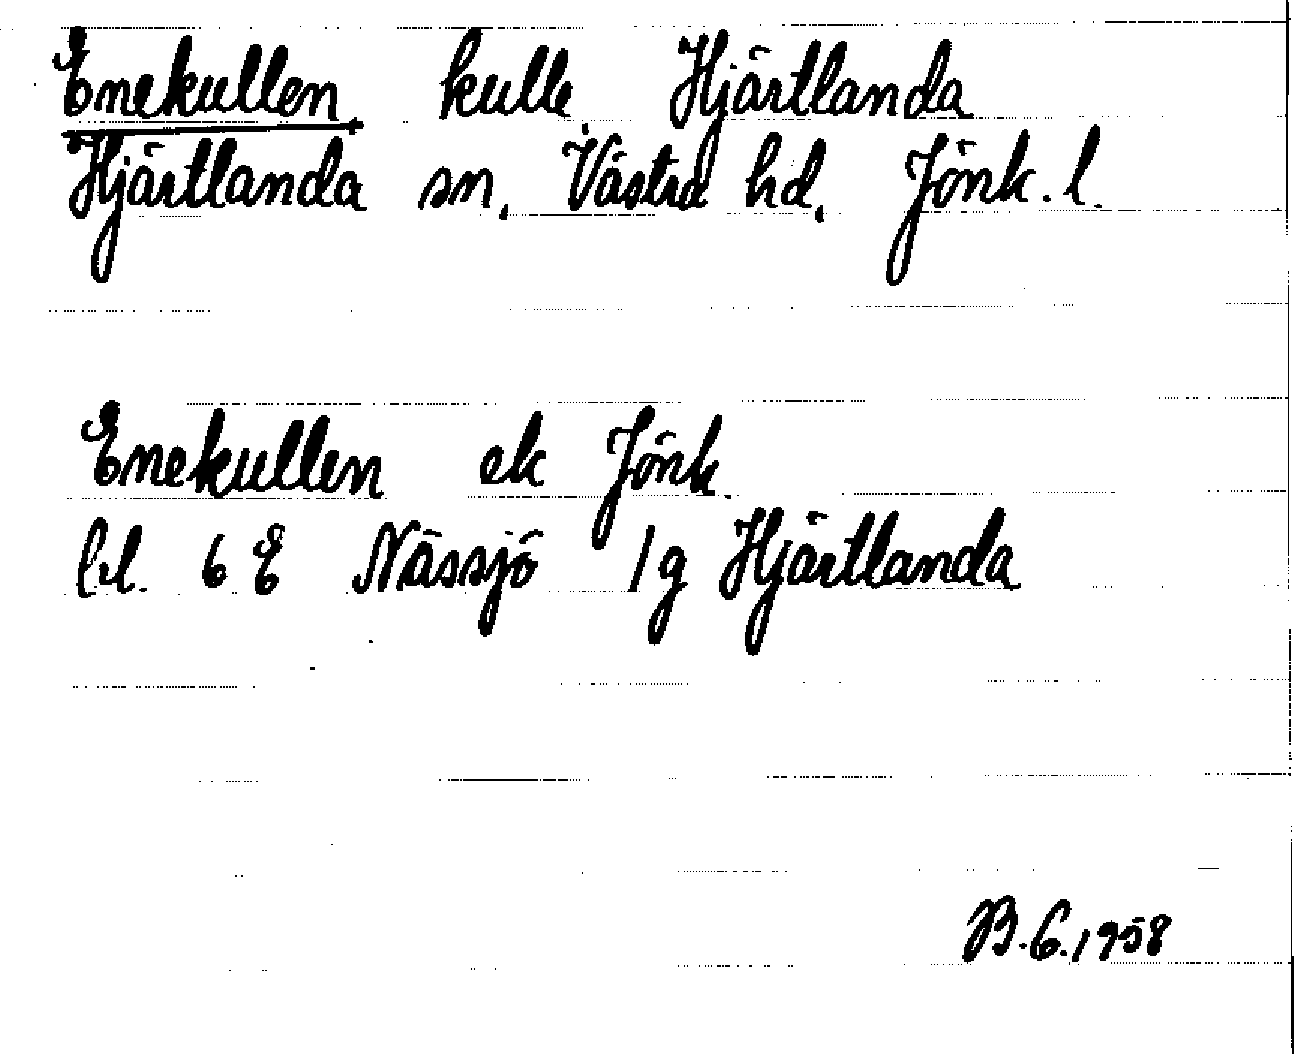 Enekullen, kulle, Hjärtlanda
Hjärtlanda sn, Västra hd, Jönk. l.
Enekullen ek Jönk.
l.l. 6 E Nässjö 1g Hjärtlanda
B.G. 1958